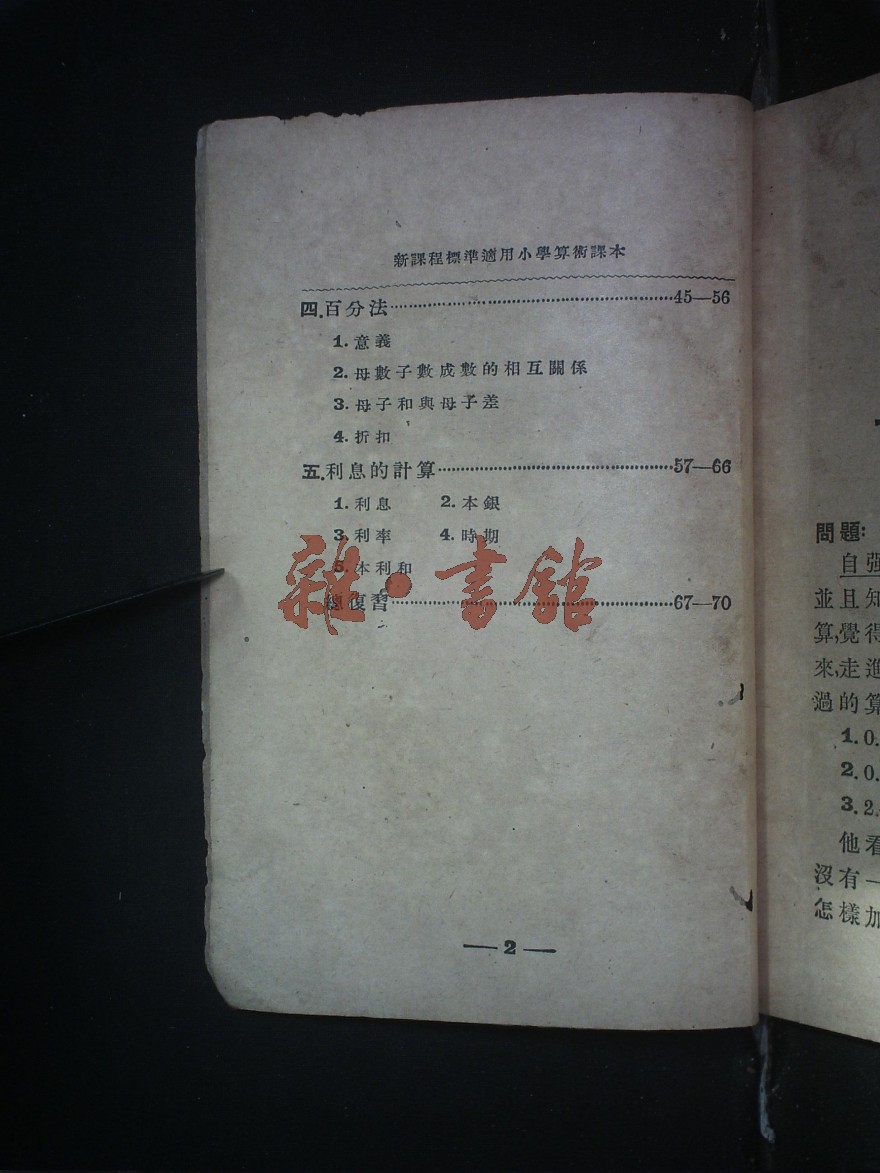 新課程標準適用小學算術課本
四.百分法……45—56
1.意義
2.母數子數成數的相互關係
3.母子和與母子差
4.折扣
五.利息的計算……57—66
1.利息 2.本銀
3.利率 4.時期
5.本利和
總復習……67—70
雜·書館
— 2 —
問題:
自强
並且知
算,覺得
來,走進
過的算
1.0.
2.0.
3.2.
他看
沒有一
怎樣加